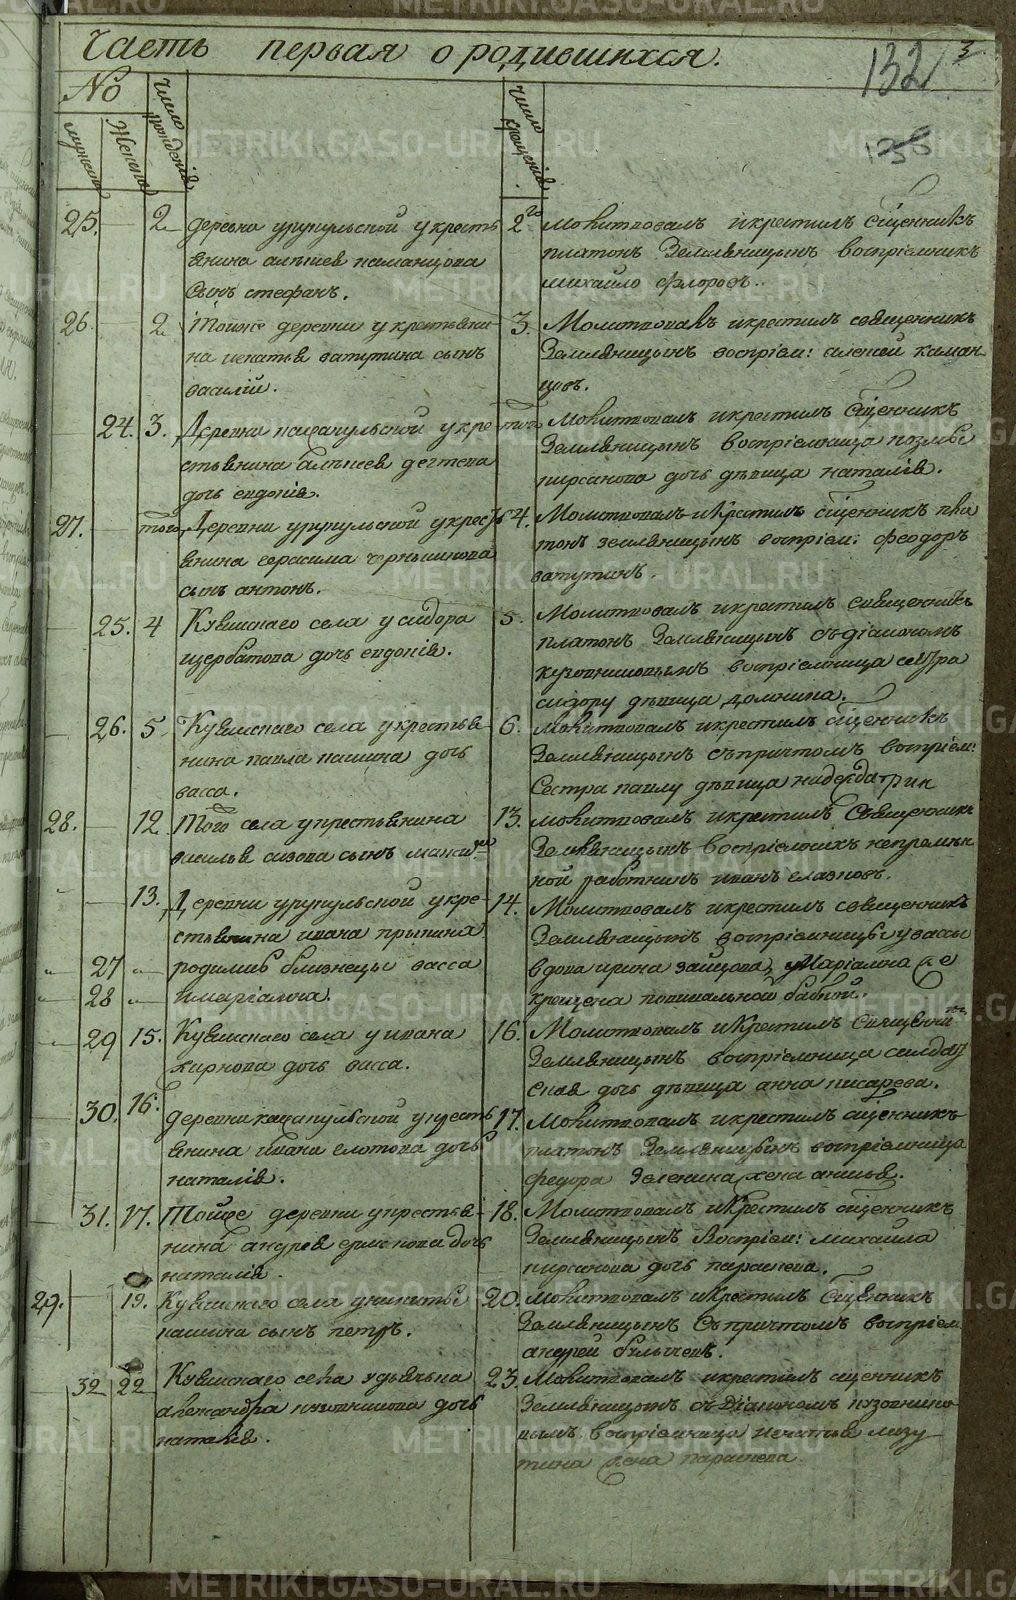 Часть первая о родившихся.
132
3
No
Число рожденія
Число крещенія
мужеска
Женска
25. 2 деревни урупульской у кресть
янина алѣѯея каманцова
сынъ стефанъ.
2го молитвовалъ и крестилъ сщенникъ
платонъ Земляницынъ воспріемникъ
михайло флоровъ.
26 2 Тойже деревни у крестьяни
на игнатья ватутина сынъ
василій.
3. Молитвовалъ и крестилъ священникъ
Земляницынъ воспріем: алексей каман
цовъ.
24. 3. Деревни кацапульской у кре
стьянина алѣксея дегтева
дочь евдокія.
того Молитвовалъ и крестилъ сщенникъ
Земляницынъ воспріемница
кирсанова дочь дѣвица наталія.
27. того Деревни урупульской у кресть
янина герасима чернышкова
сынъ антонъ.
4. Молитвовалъ и крестилъ сщенникъ пла
тонъ земляницынъ воспріем: феодоръ
ватутинъ.
25. 4 Кувшскаго села у сидора
щербатова дочь евдокія.
5. Молитвовалъ и крестилъ священникъ
платонъ Земляницынъ съ діакономъ
кузовниковымъ воспріемница сестра
сидору дѣвица домнина.
26. 5 Кувшскаго села у крестья
нина павла пашина дочь
васса.
6. молитвовалъ и крестилъ сщенникъ
Земляницынъ съ причтомъ воспріем:
Сестра павлу дѣвица
28. 12 Того села у крестьянина
василья сизова сынъ
13. молитвовалъ и крестилъ священникъ
Земляницынъ воспріемникъ непремѣн
ной работникъ иванъ глазковъ.
13. Деревни урупульской у кре
стьянина ивана
27 родились близнецы васса
28 и маріамна.
14. Молитвовалъ и крестилъ священникъ
Земляницынъ воспріемницы у вассы
вдова ирина зайцова, Маріамна
крещена повивальной бабкой.
29 15. Кувшскаго села у ивана
жиркова дочь васса.
16. Молитвовалъ и крестилъ священникъ
Земляницынъ воспріемница салдат
ская дочь дѣвица анна писарева.
30. 16. деревни кацапульской у кресть
янина ивана елотова дочь
наталія.
17. Молитвовалъ и крестилъ сщенникъ
платонъ Земляницынъ воспріемница
федора Зеленина жена анисья.
31. 17. Тойже деревни у крестья
нина андрея ермакова дочь
наталія.
18. Молитвовалъ и крестилъ сщенникъ
Земляницынъ Воспріем: михайла
кирсанова дочь параскева.
29. 19. Кувшскаго села у никиты
пашина сынъ петръ.
20. молитвовалъ и крестилъ сщенникъ
Земляницынъ съ причтомъ воспріем
андрей булычевъ.
32 22 Кувшскаго села у дьячка
александра кузовникова дочь
наталія.
23. Молитвовалъ и крестилъ сщенникъ
Земляницынъ съ діакономъ кузовнико
вымъ воспріемница игнатья лазу
тина жена параскева
METRIKI.GASO-URAL.RU